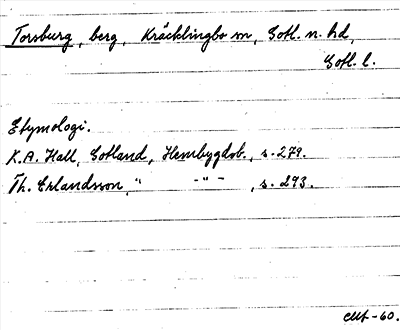 Torsburg, berg, Kräcklingbo sn, Gotl. n. hd,
Gotl. l.
Etymologi.
K.A. Hall, Gotland, Hembygdsb., s. 279.
Th. Erlandsson, " - " - , s. 293.
-60.